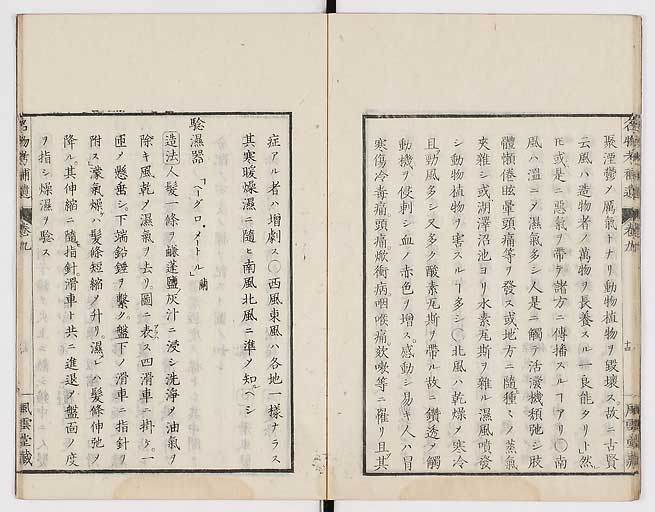 聚湮鬱ノ厲氣トナリ動物植物ヲ毀壞ス故ニ古賢
云風ハ造物者ノ萬物ヲ長養スル一良能タリト然
𪜈或ハ是ニ惡氣ヲ帶テ諸方ニ傳播スルヿアリ〇南
風ハ溫ニメ濕氣多シ人是ニ觸テ活潑機類弛シ肢
體懶倦眩暈頭痛等ヲ發ス或地方ニ隨種々ノ蒸氣
夾雜シ或湖澤沼池ヨリ水素瓦斯ヲ雜ル濕風噴發
シ動物植物ヲ害スルヿ多シ〇北風ハ乾燥メ寒冷
且勁風多シ又多ク酸素瓦斯ヲ帶ル故ニ鑽透メ觸
動機ヲ侵刺シ血ノ赤色ヲ增ス感動シ易キ人ハ冒
寒傷冷毒痛頭痛焮衝病咽喉痛欬嗽等ニ罹リ且其
名物考補遺
卷九
風雲堂藏
症アル者ハ增劇ス〇西風東風ハ各地一樣ナラス
其寒暖燥濕ニ隨ヒ南風北風ニ準メ知ベシ
驗濕器「ヒーグロ・メートル」蘭
造法 人髮一條ヲ鹻蓬鹽灰汁ニ浸シ洗淨メ油氣ヲ
除キ風乾メ濕氣ヲ去リ圖ニ表ス四滑車ニ掛ケ一
匝メ懸垂シ下端鉛錘ヲ繫ク盤下ノ滑車ニ指針ヲ
附ス濛氣燥ハ髮條短縮メ升リ濕ヒハ髮條伸弛メ
降ル其伸縮ニ隨指針滑車ト共ニ進退メ盤面ノ度
ヲ指シ燥濕ヲ驗ス
名物考補遺
卷九
風雲堂藏